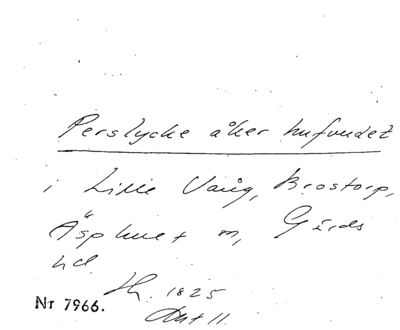 Perslycke åker hufvudet
i Lilla Vång, Brostorp,
Äsphult m, Gärds
hd.
1825
Nr 7966. Akt 11.